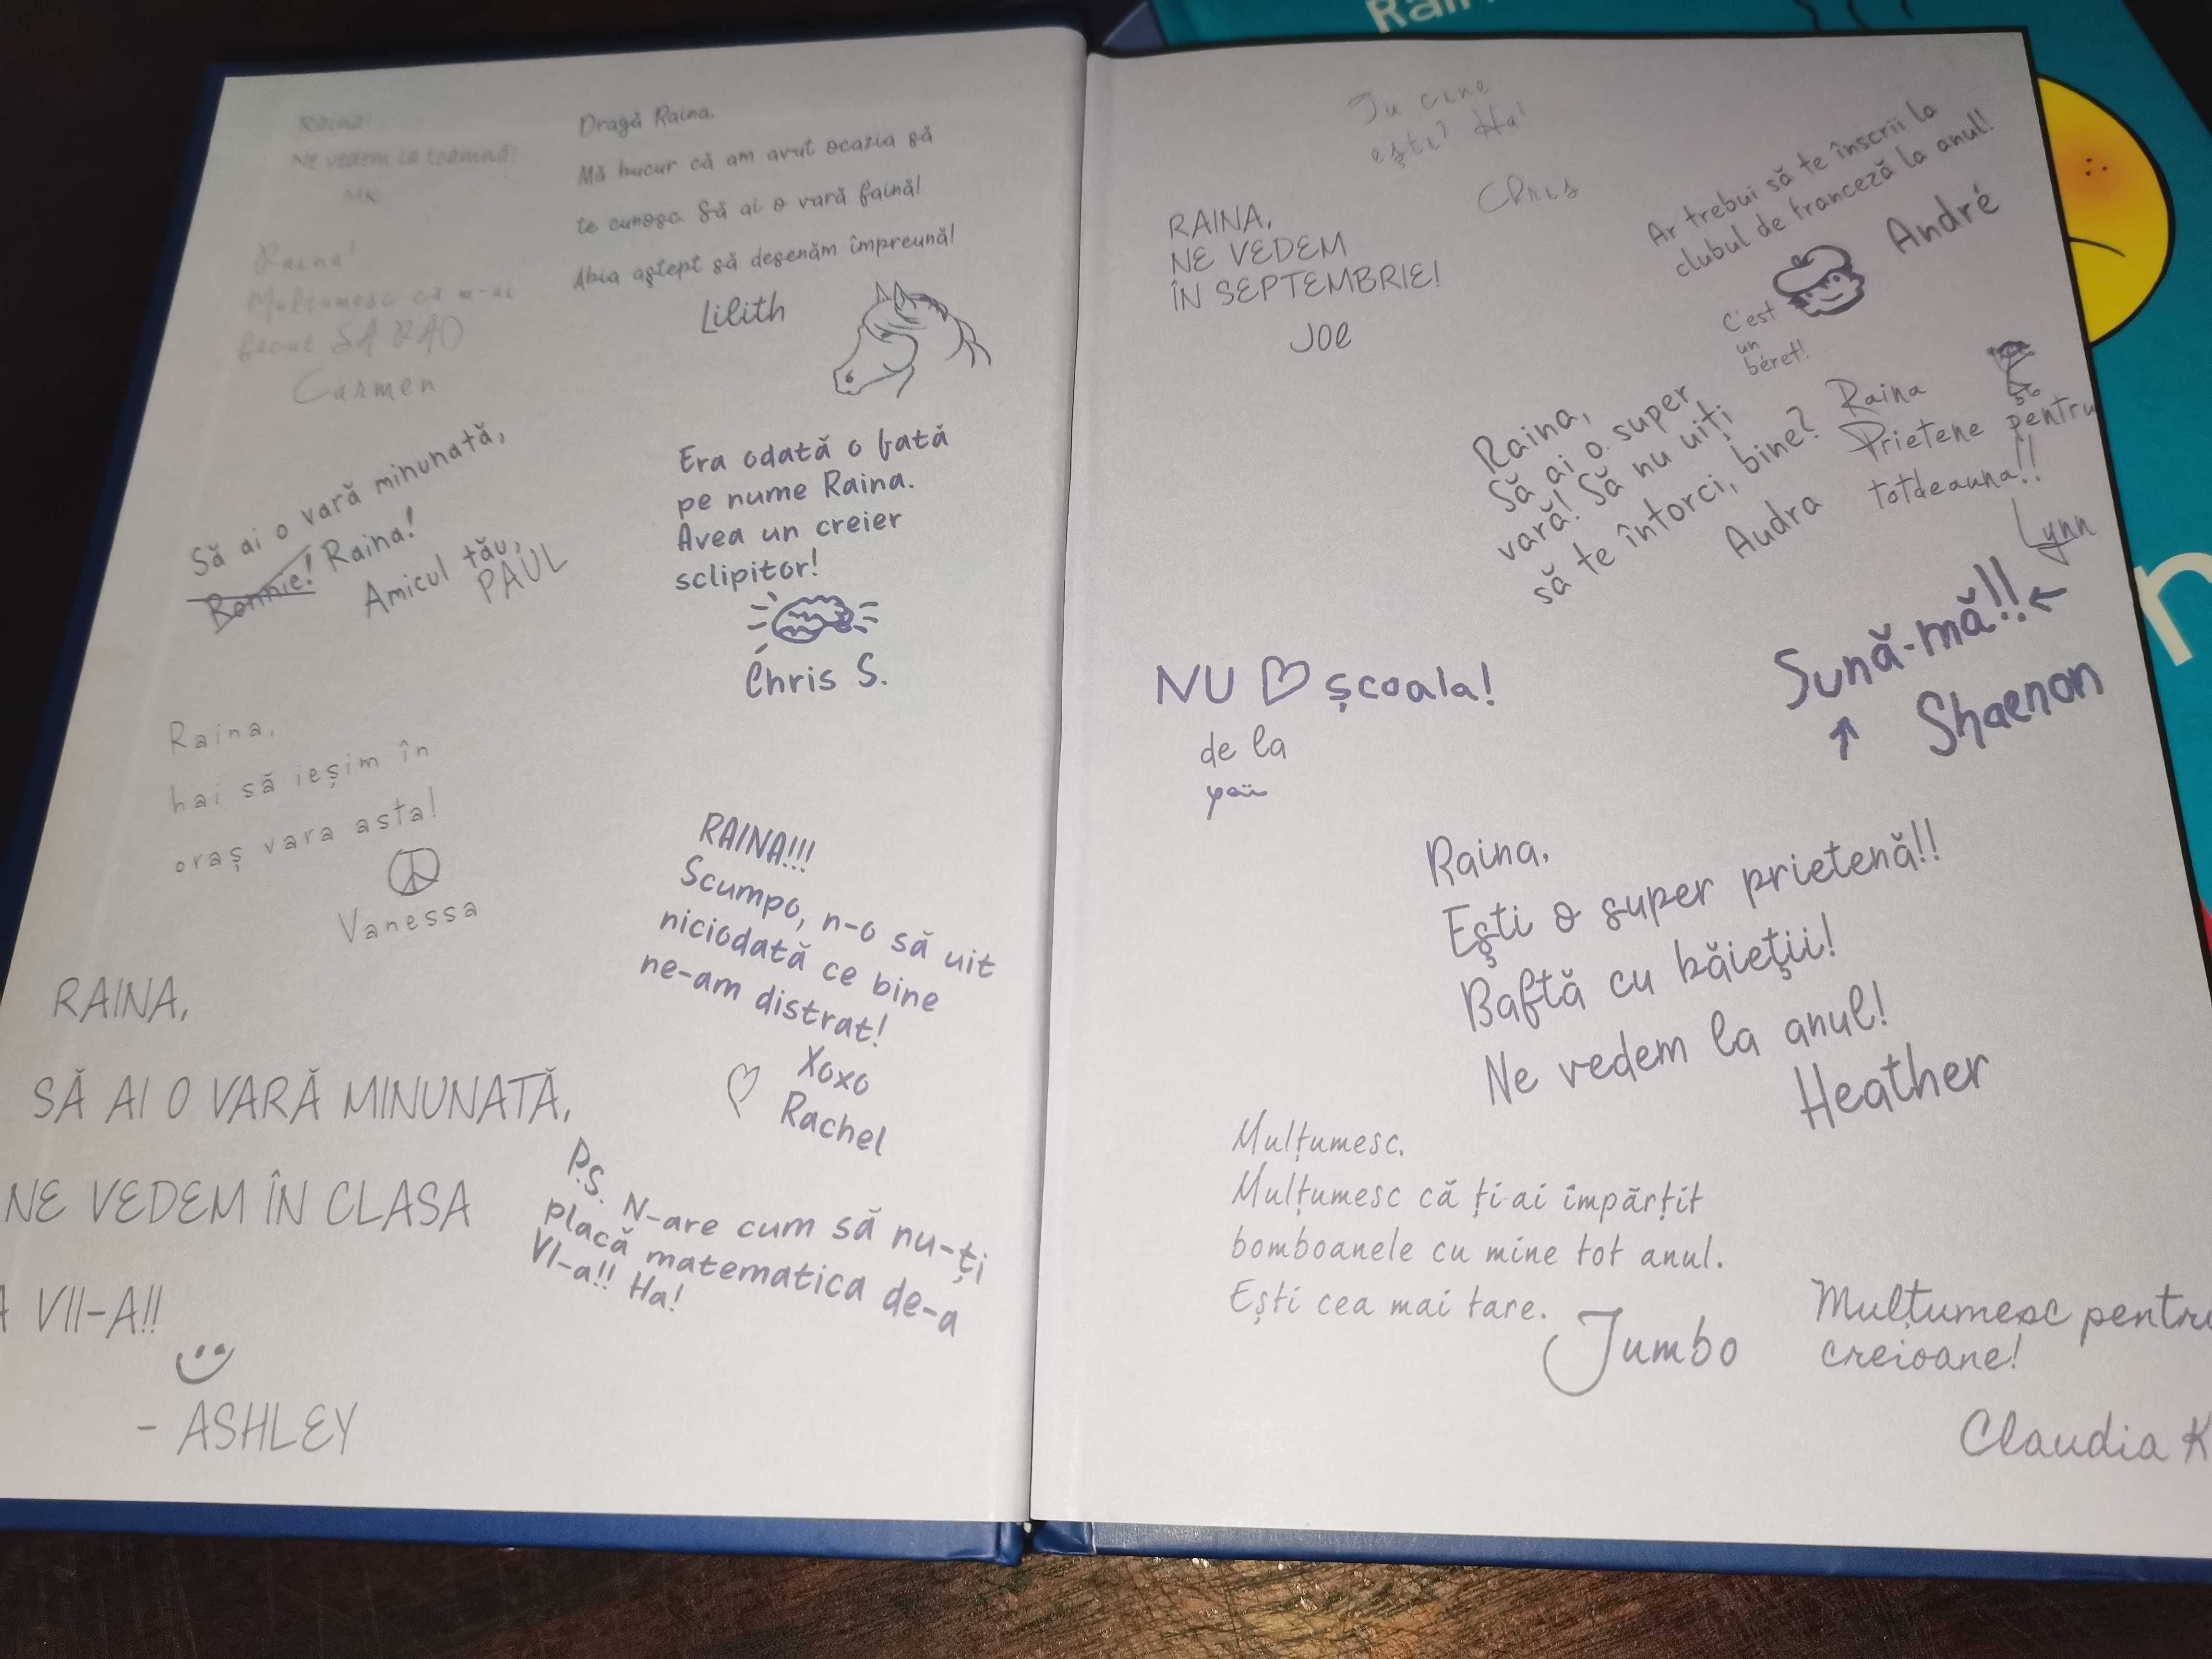 Raina!
Ne vedem la toamnă!
MK
Raina!
Mulțumesc că m-ai
făcut SĂ RÂD
Carmen
Dragă Raina,
Mă bucur că am avut ocazia să
te cunosc. Să ai o vară faină!
Abia aștept să desenăm împreună!
Lilith
Să ai o vară minunată,
Ronnie! Raina!
Amicul tău,
PAUL
Era odată o fată
pe nume Raina.
Avea un creier
sclipitor!
Chris S.
Raina,
hai să ieșim în
oraș vara asta!
Vanessa
RAINA!!!
Scumpo, n-o să uit
niciodată ce bine
ne-am distrat!
Xoxo
Rachel
P.S. N-are cum să nu-ți
placă matematica de-a
VI-a!! Ha!
RAINA,
SĂ AI O VARĂ MINUNATĂ,
NE VEDEM ÎN CLASA
A VII-A!!
- ASHLEY
Tu cine
ești? Ha!
Chris
RAINA,
NE VEDEM
ÎN SEPTEMBRIE!
JOE
Ar trebui să te înscrii la
clubul de franceză la anul!
André
C'est
un
béret!
Raina,
Să ai o super
vară! Să nu uiți
să te întorci, bine?
Audra
Raina
Prietene pentru
totdeauna!!
Lynn
Sună-mă!!
Shaenon
NU școala!
de la
Raina,
Ești o super prietenă!!
Baftă cu băieții!
Ne vedem la anul!
Heather
Mulțumesc.
Mulțumesc că ți-ai împărțit
bomboanele cu mine tot anul.
Ești cea mai tare.
Jumbo
Mulțumesc pentru
creioane!
Claudia K